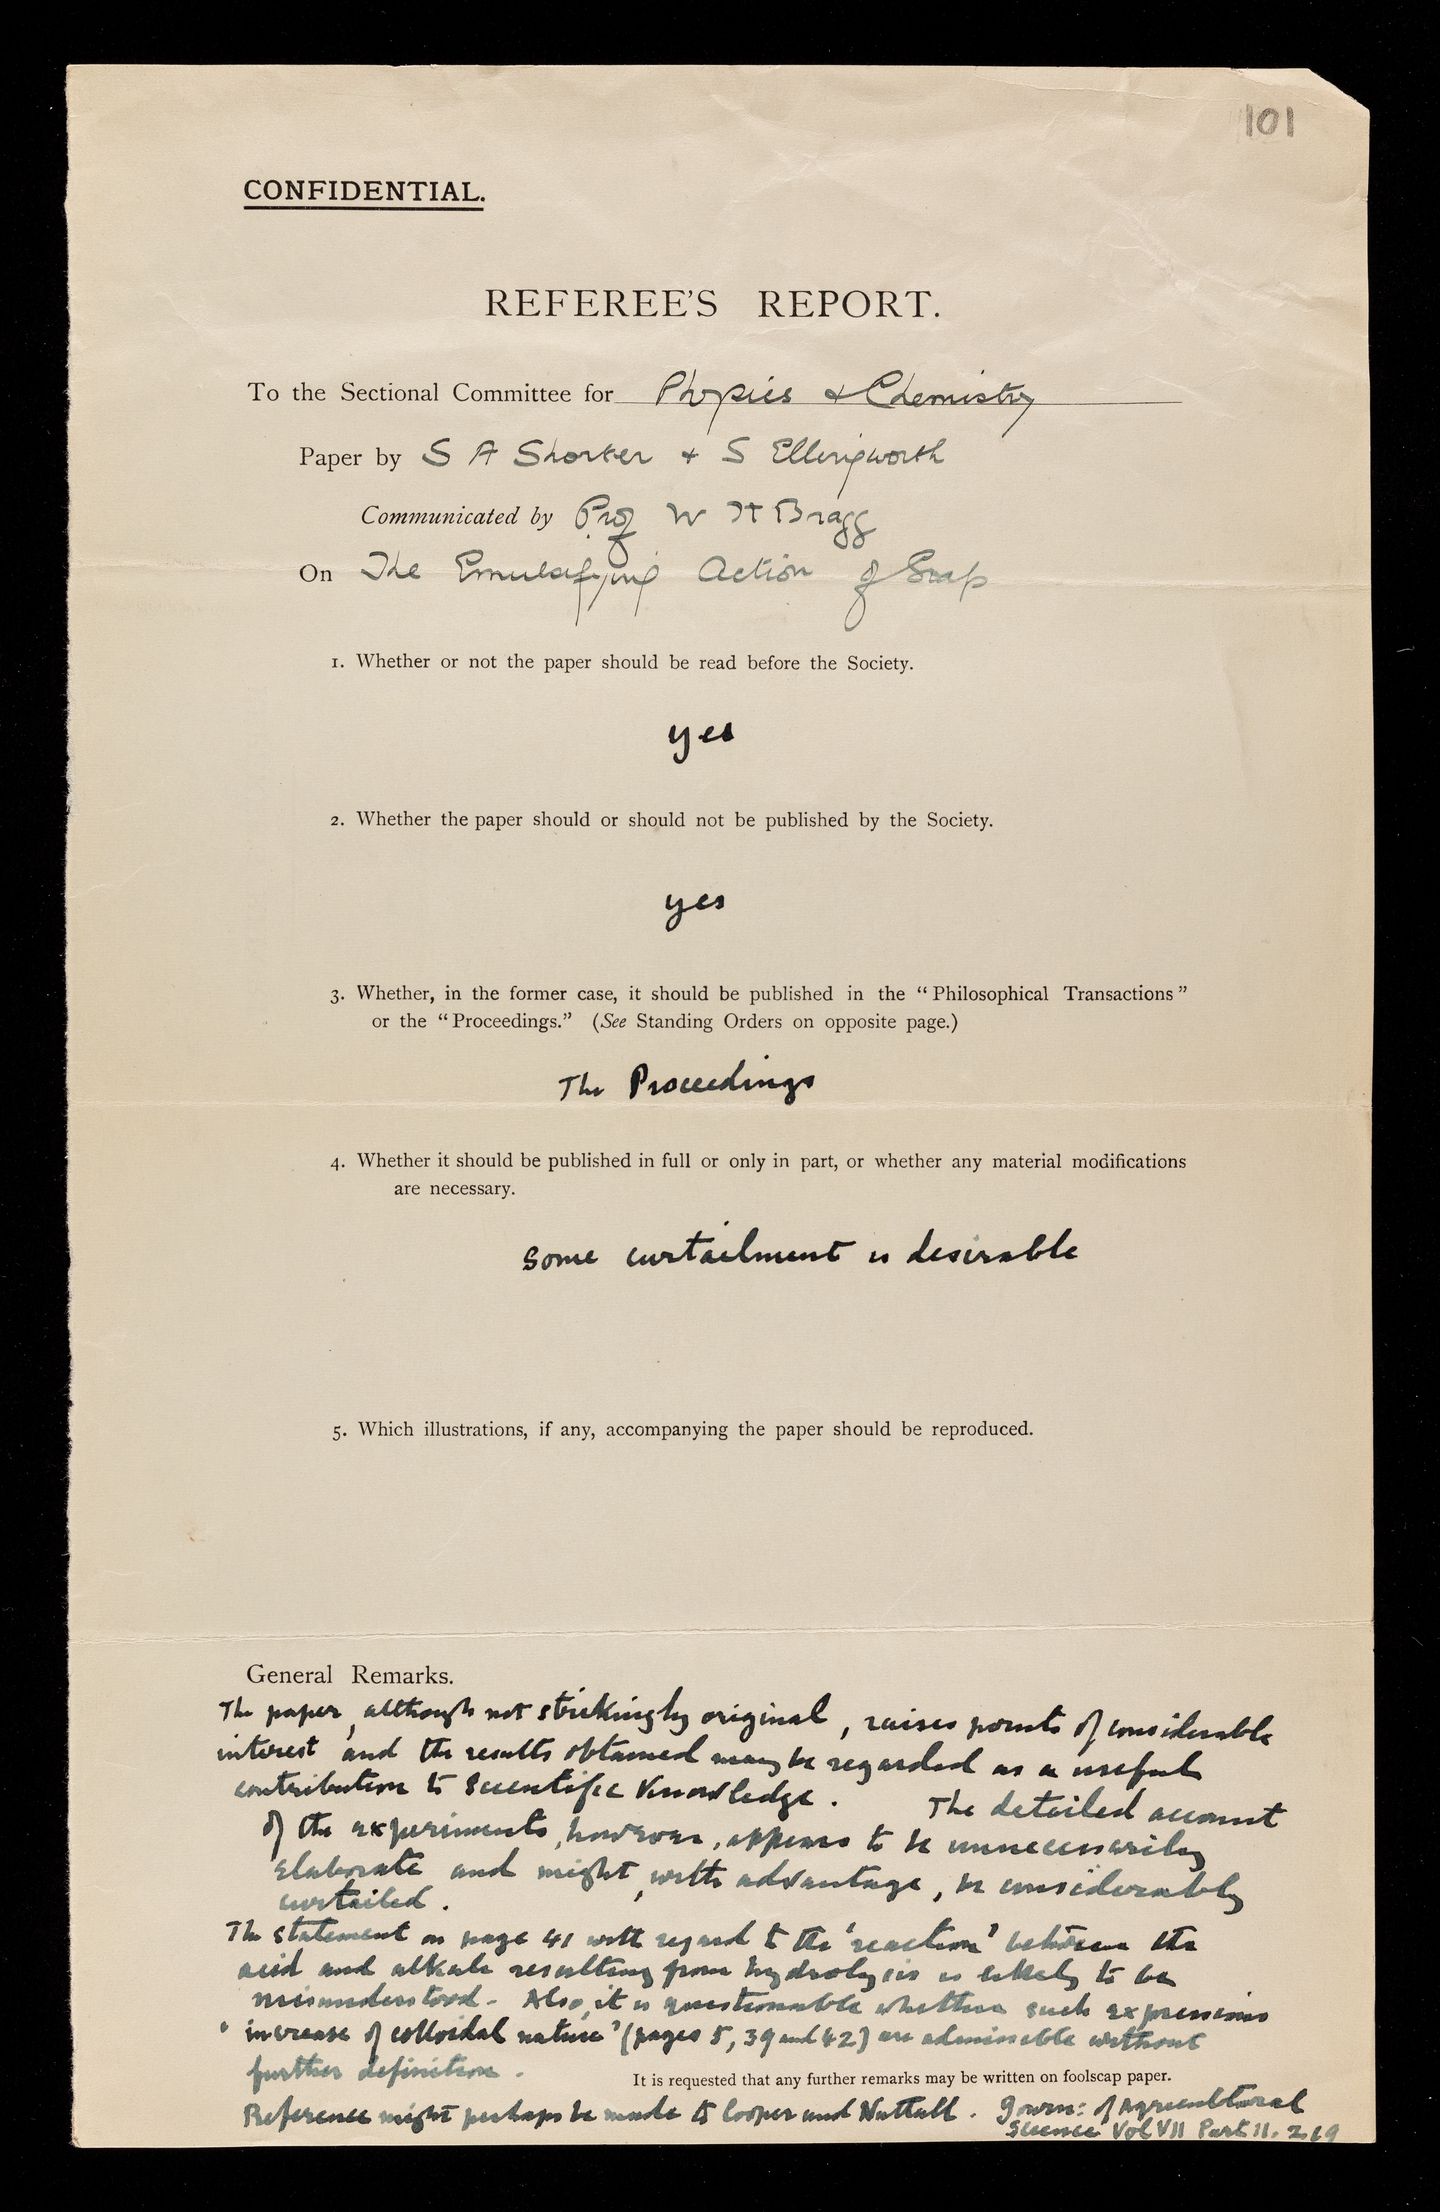 101
CONFIDENTIAL.
REFEREE'S REPORT.
To the Sectional Committee for Physics & Chemistry
Paper by S A Shorter + S Ellingworth
Communicated by Prof W H Bragg
On The Emulsifying Action of Soap
1. Whether or not the paper should be read before the Society.
yes
2. Whether the paper should or should not be published by the Society.
yes
3. Whether, in the former case, it should be published in the "Philosophical Transactions"
or the "Proceedings." (See Standing Orders on opposite page.)
The Proceedings
4. Whether it should be published in full or only in part, or whether any material modifications
are necessary.
Some curtailment is desirable
5. Which illustrations, if any, accompanying the paper should be reproduced.
General Remarks.
The paper, although not strikingly original, raises points of considerable
interest and the results obtained may be regarded as a useful
contribution to Scientific Knowledge. The detailed account
of the experiments, however, appears to be unnecessarily
elaborate and might, with advantage, be considerably
curtailed.
The statement on page 41 with regard to the 'reaction' between the
acid and alkali resulting from hydrolysis is likely to be
misunderstood. Also, it is questionable whether such expressions
'increase of colloidal nature' (pages 5, 39 and 42) are admissible without
further definition.
It is requested that any further remarks may be written on foolscap paper.
Reference might perhaps be made to Cooper and Nuttall. Journ: of Agricultural
Science Vol VII Part II. 219